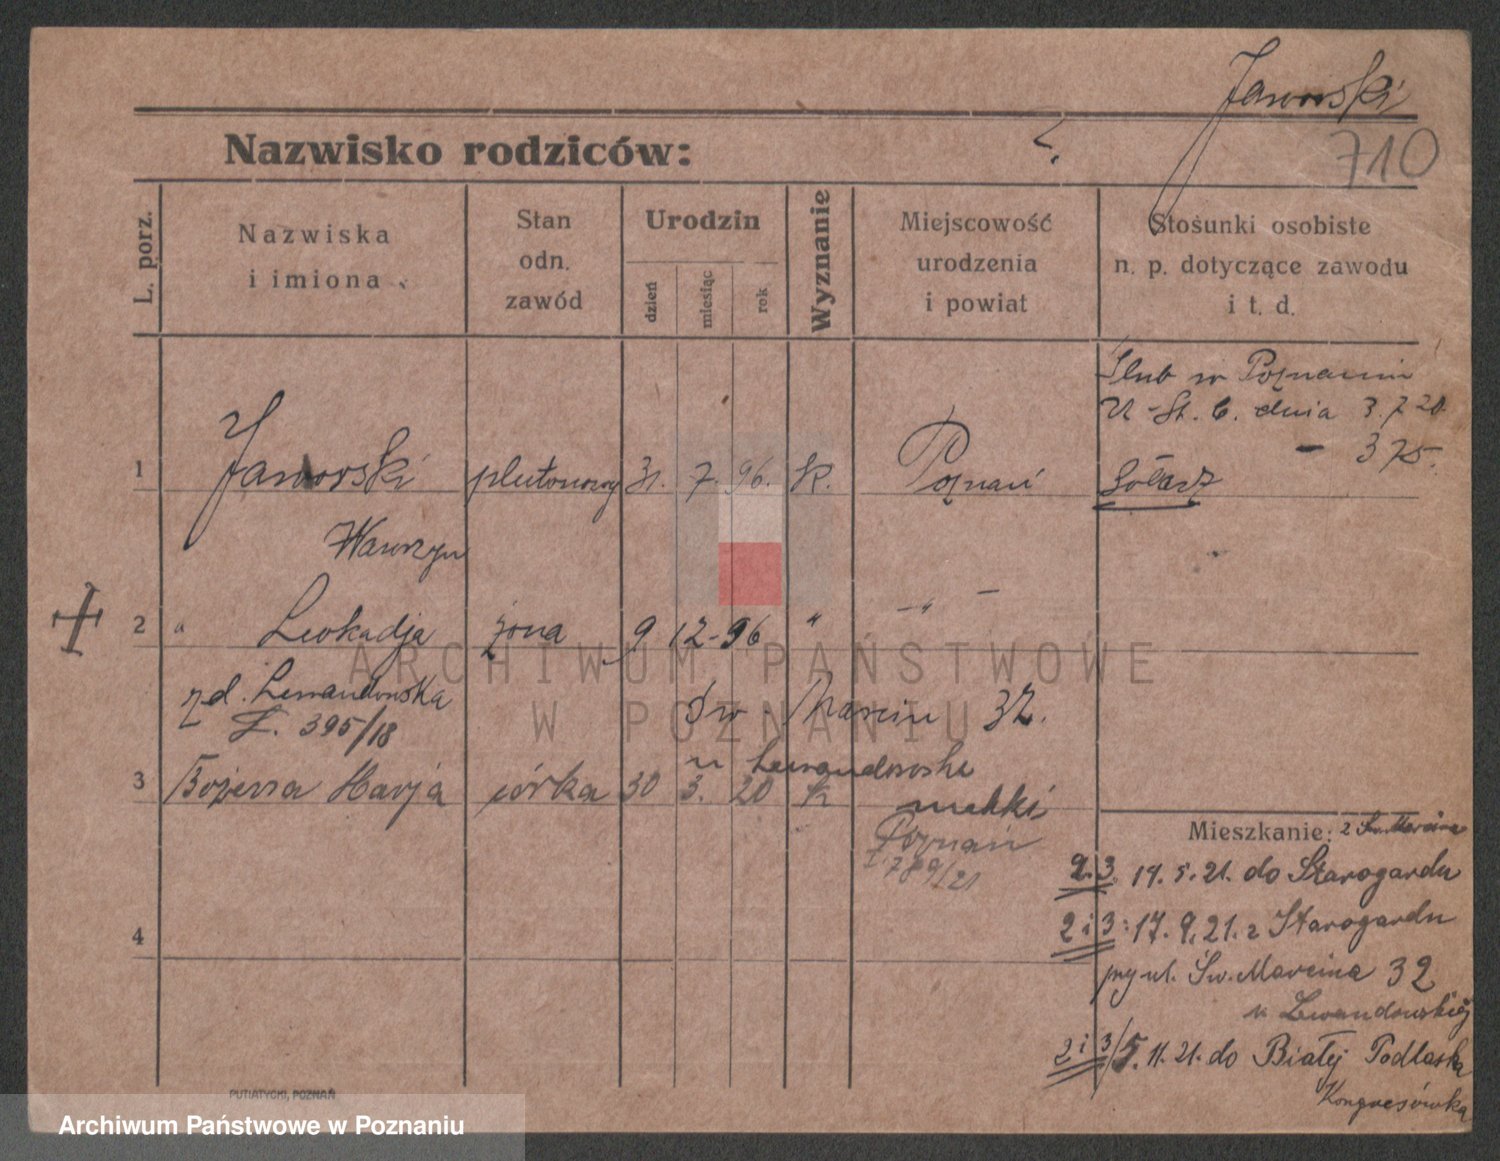 Jaworski
710
Nazwisko rodziców:
L. porz.
Nazwiska
i imiona
Stan
odn.
zawód
Urodzin
dzień
miesiąc
rok
Wyznanie
Miejscowość
urodzenia
i powiat
Stosunki osobiste
n. p. dotyczące zawodu
i t. d.
Ślub w Poznaniu
U-St. 6. dnia 3.7 20.
- 375.
1 Jaworski plutonowy 31. 7. 96. K. Poznań Sołacz
Wawrzyn
2 " Leokadja żona 9 12-96 " - " -
zd. Lewandowska Św. Marcin 32.
Ł. 395/18
u Lewandowski
3 Bożena Marja córka 30 3. 20 K
matki
Poznań
789/21
4
Mieszkanie: z Św. Marcina
2.3. 14. 5. 21. do Starogardu
2 i 3: 17. 9. 21. z Starogardu
przy ul. Św. Marcina 32
u Lewandowskiej
2 i 3/5. 11. 21. do Białej Podlaska
Kongresówka
PUTIATYCKI, POZNAŃ
ARCHIWUM PAŃSTWOWE
W POZNANIU
Archiwum Państwowe w Poznaniu